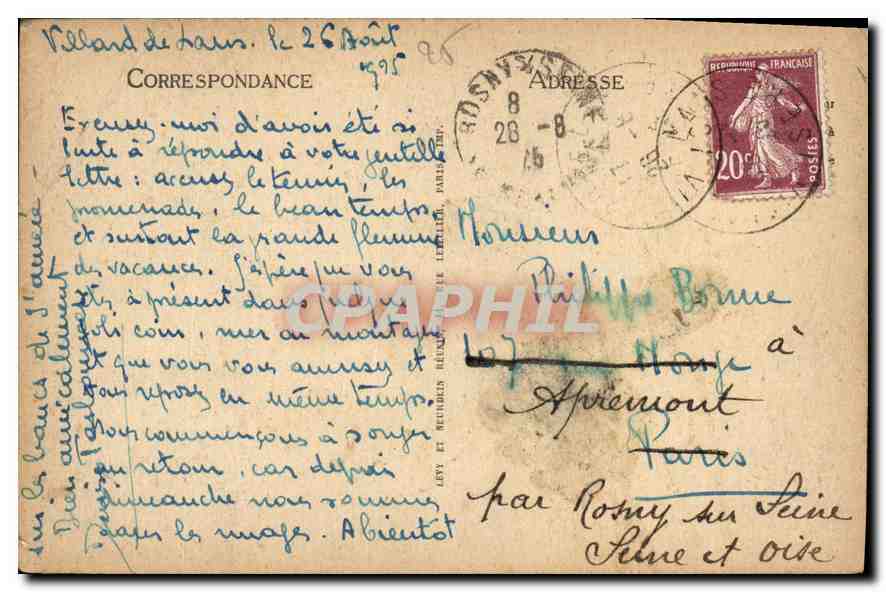 Villard de Lans. le 26 Août
1925
25
CORRESPONDANCE
ADRESSE
ROSNY S/SEINE
8
28 - 8
25
REPUBLIQUE FRANÇAISE
20c
POSTES
Excusez-moi d'avoir été si
lente à répondre à votre gentille
lettre : accusez le tennis, les
promenades, le beau temps,
et surtout la grande flemme
des vacances. J'espère que vous
êtes à présent dans quelque
joli coin, mer ou montagne
et que vous vous amusez et
vous reposez en même temps.
Nous commençons à songer
au retour, car depuis
dimanche nous sommes
dans les nuages. A bientôt
sur les bancs de l'année
Bien amicalement
LÉVY ET NEURDEIN RÉUNIS, RUE LETELLIER, PARIS IMP.
CPAPHIL
Monsieur
Philippe Borme
107 rue Monge à
Apremont
Paris
par Rosny sur Seine
Seine et Oise